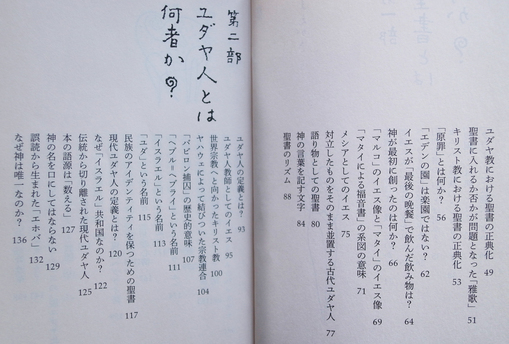 ユダヤ教における聖書の正典化 49
聖書に入れるか否かが問題となった「雅歌」 51
キリスト教における聖書の正典化 53
「原罪」とは何か? 56
「エデンの園」は楽園ではない? 62
イエスが「最後の晩餐」で飲んだ飲み物は? 64
神が最初に創ったのは何か? 66
「マルコ」のイエス像と「マタイ」のイエス像 69
「マタイによる福音書」の系図の意味 71
メシアとしてのイエス 75
対立したものをそのまま並置する古代ユダヤ人 77
語り物としての聖書 80
神の言葉を記す文字 84
聖書のリズム 88
第二部
ユダヤ人とは
何者か?
ユダヤ人の定義とは? 93
ユダヤ人教師としてのイエス 95
世界宗教へと向かったキリスト教 100
ヤハウェによって結びついた宗教連合 104
「バビロン捕囚」の歴史的意味 107
「ヘブル=ヘブライ」という名前 111
「イスラエル」という名前 113
「ユダ」という名前 115
民族のアイデンティティを保つための聖書 117
現代ユダヤ人の定義とは? 120
なぜ「イスラエル」共和国なのか? 122
伝統から切り離された現代ユダヤ人 125
本の語源は「数える」 127
神の名を口にしてはならない 129
誤読から生まれた「エホバ」 132
なぜ神は唯一なのか? 136